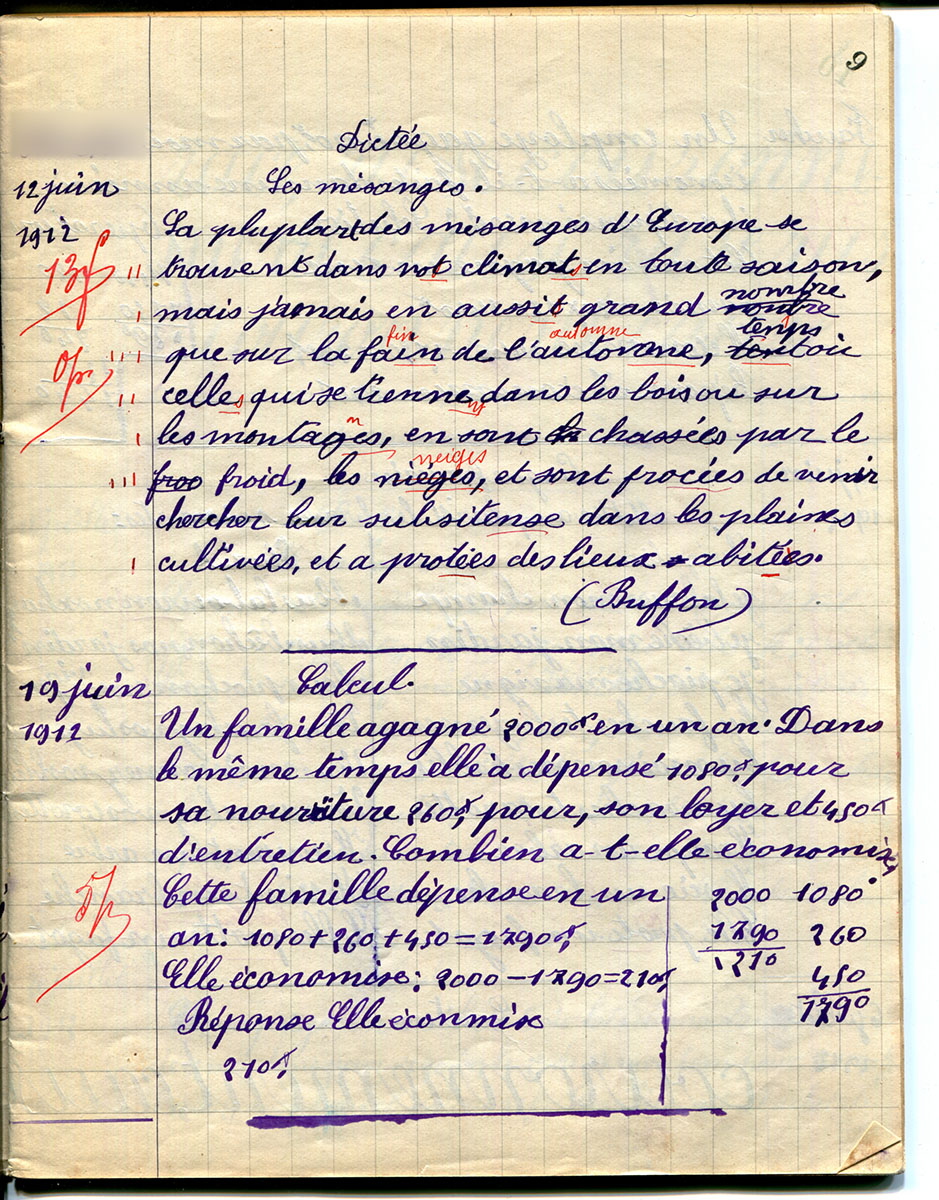 9
Dictée
12 juin
Les mésanges.
1912
La pluplart des mésanges d'Europe se
13f
trouvent dans not climats en toute saison,
mais jamais en aussit grand nombre nombre
fin automne temps
0p
que sur la fain de l'autonne, ou
celles qui se tienne nt dans les bois ou sur
n
les montages, en sont chassées par le
neiges
froo froid, les nièges, et sont frocées de venir
chercher leur subsitense dans les plaines
cultivées, et a protées des lieux abitées.
(Buffon)
19 juin
1912
Calcul.
Un famille a gagné 2000f en un an. Dans
le même temps elle a dépensé 1080f pour
sa nouriture 260f pour, son loyer et 450f
d'entretien. Combien a-t-elle économisé
5p
Cette famille dépense en un
an: 1080+260+450=1790f
Elle économise: 2000-1790=210f
Réponse Elle éconmise
210f
2000 1080
1790 260
1210 450
1790